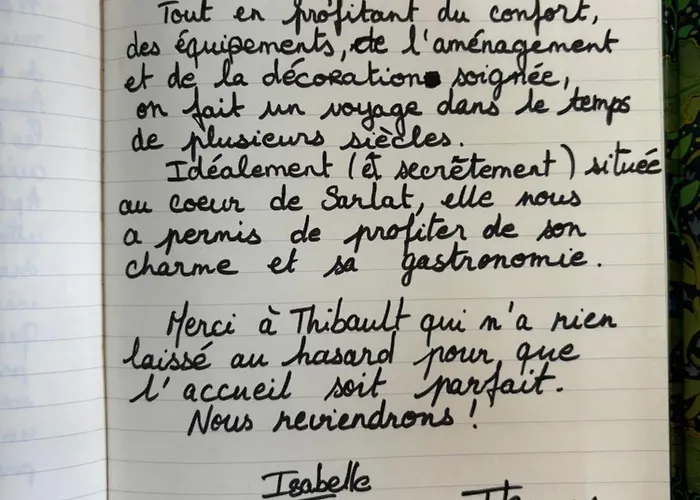 Tout en profitant du confort,
des équipements, de l'aménagement
et de la décoration soignée,
on fait un voyage dans le temps
de plusieurs siècles.
Idéalement (et secrètement) située
au coeur de Sarlat, elle nous
a permis de profiter de son
charme et sa gastronomie.
Merci à Thibault qui n'a rien
laissé au hasard pour que
l'accueil soit parfait.
Nous reviendrons !
Isabelle